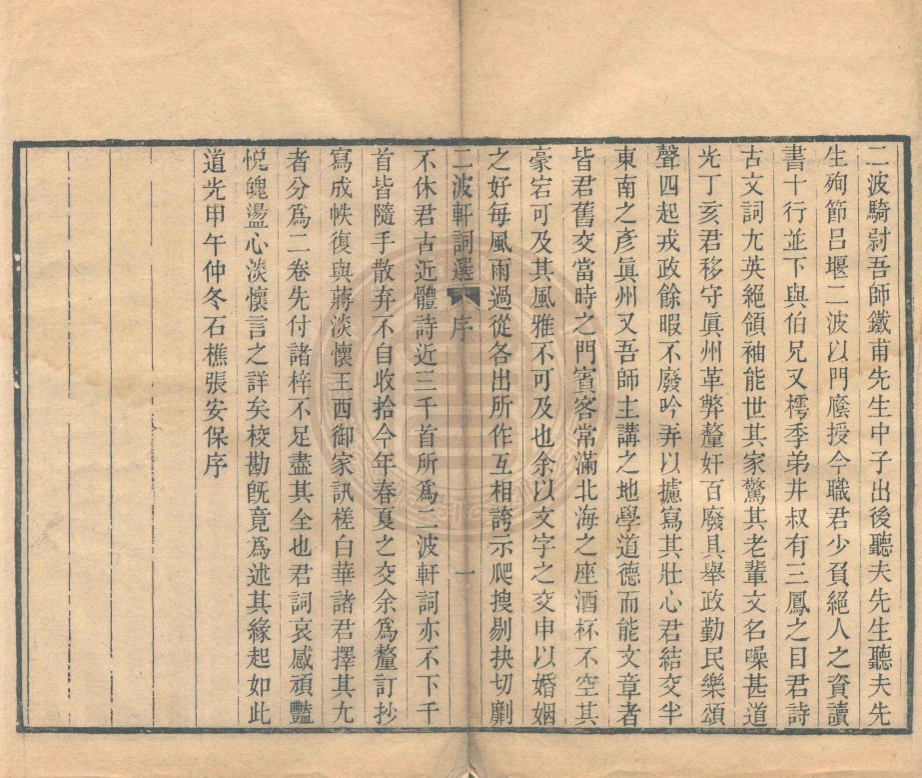 二波騎尉吾師鐵甫先生中子出後聽夫先生聽夫先
生殉節呂堰二波以門廕授今職君少負絕人之資讀
書十行並下與伯兄又樗季弟井叔有三鳳之目君詩
古文詞尤英絕領袖能世其家驚其老輩文名噪甚道
光丁亥君移守眞州革弊釐奸百廢具舉政勤民樂頌
聲四起戎政餘暇不廢吟弄以攄寫其壯心君結交半
東南之彥眞州又吾師主講之地學道德而能文章者
皆君舊交當時之門賓客常滿北海之座酒杯不空其
豪宕可及其風雅不可及也余以文字之交申以婚姻
之好每風雨過從各出所作互相誇示爬搜剔抉切劘
二波軒詞選 序 一
不休君古近體詩近三千首所爲二波軒詞亦不下千
首皆隨手散弃不自收拾今年春夏之交余爲釐訂抄
寫成帙復與蔣淡懷王西御家訊槎白華諸君擇其尤
者分爲二卷先付諸梓不足盡其全也君詞哀感頑豔
悅魄盪心淡懷言之詳矣校勘旣竟爲述其緣起如此
道光甲午仲冬石樵張安保序